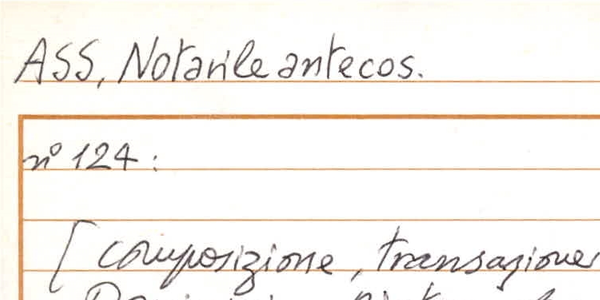 ASS, Notarile antecos.
n° 124:
[ composizione, transazione